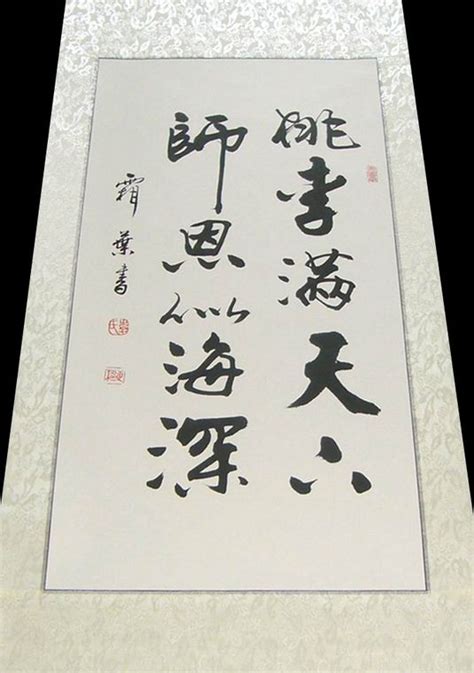 桃李满天下
師恩似海深
霜葉書